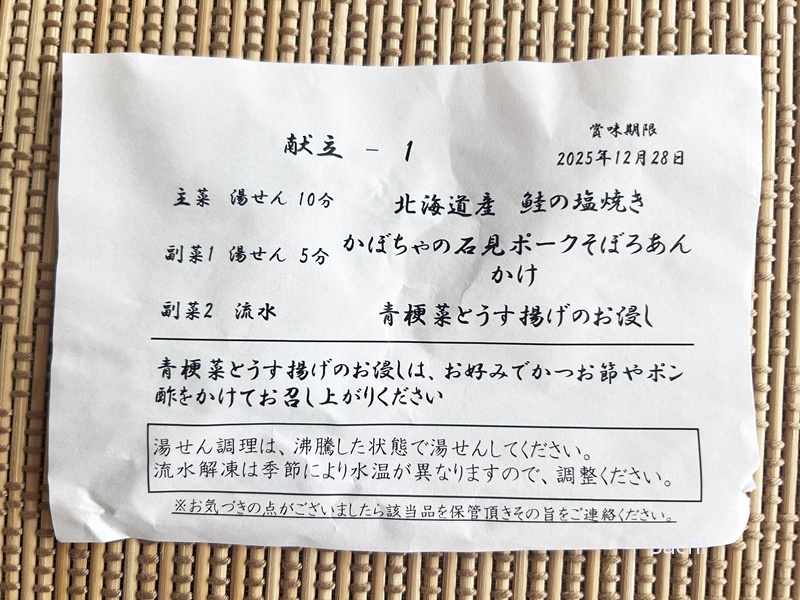 賞味期限
献立 － 1
2025年12月28日
主菜 湯せん 10分 北海道産 鮭の塩焼き
副菜1 湯せん 5分 かぼちゃの石見ポークそぼろあん
かけ
副菜2 流水 青梗菜とうす揚げのお浸し
青梗菜とうす揚げのお浸しは、お好みでかつお節やポン
酢をかけてお召し上がりください
湯せん調理は、沸騰した状態で湯せんしてください。
流水解凍は季節により水温が異なりますので、調整ください。
※お気づきの点がございましたら該当品を保管頂きその旨をご連絡ください。